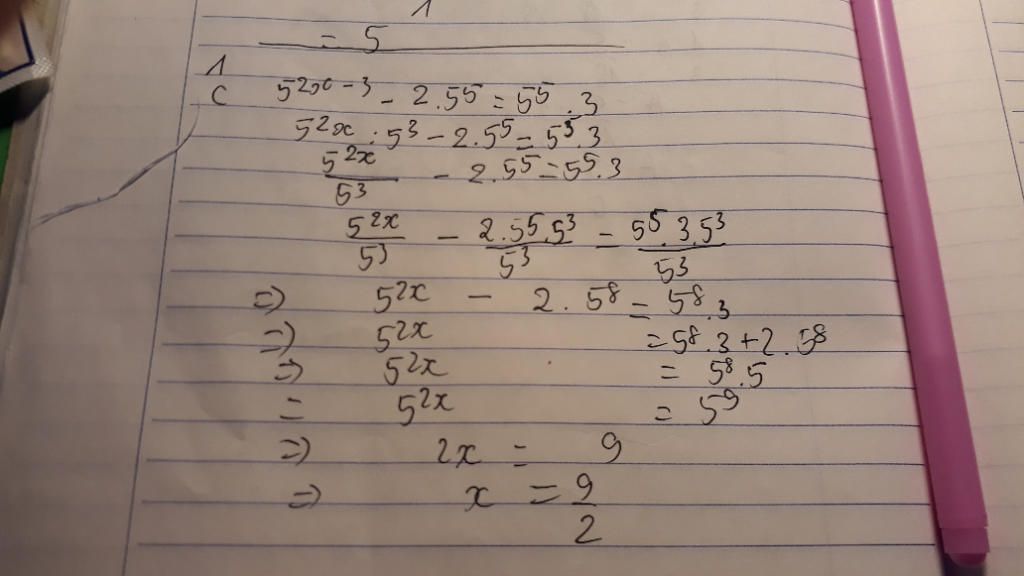 1
= 5
1
c 5^{2x-3} - 2.5^5 = 5^5.3
5^{2x} : 5^3 - 2.5^5 = 5^5.3
\frac{5^{2x}}{5^3} - 2.5^5 = 5^5.3
\frac{5^{2x}}{5^3} - \frac{2.5^5.5^3}{5^3} = \frac{5^5.3.5^3}{5^3}
=) 5^{2x} - 2.5^8 = 5^8.3
=) 5^{2x} = 5^8.3+2.5^8
=) 5^{2x} = 5^8.5
= 5^{2x} = 5^9
=) 2x = 9
=) x = \frac{9}{2}